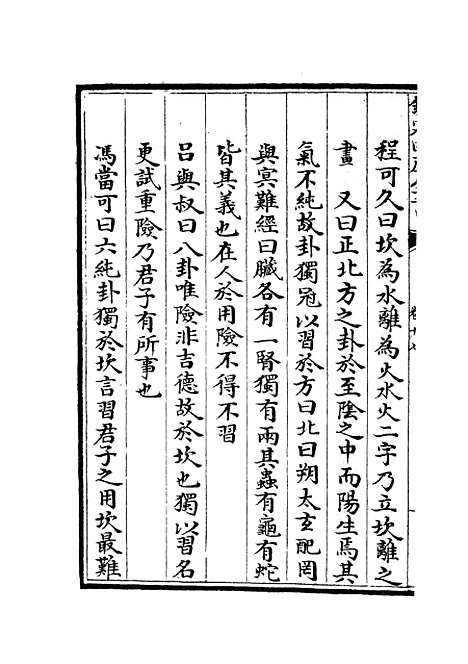 程可久曰坎為水離為火水火二字乃立坎離之
畫　又曰正北方之卦於至陰之中而陽生焉其
氣不純故卦獨冠以習於方曰北曰朔太玄配罔
與冥難經曰臟各有一腎獨有兩其蟲有龜有蛇
皆其義也在人於用險不得不習
吕與叔曰八卦唯險非吉德故於坎也獨以習名
更試重險乃君子有所事也
馮當可曰六純卦獨於坎言習君子之用坎最難